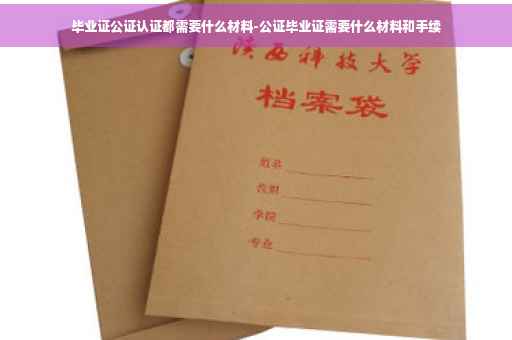 毕业证公证认证都需要什么材料-公证毕业证需要什么材料和手续
陕西科技大学
档案袋
姓名
学院
专业